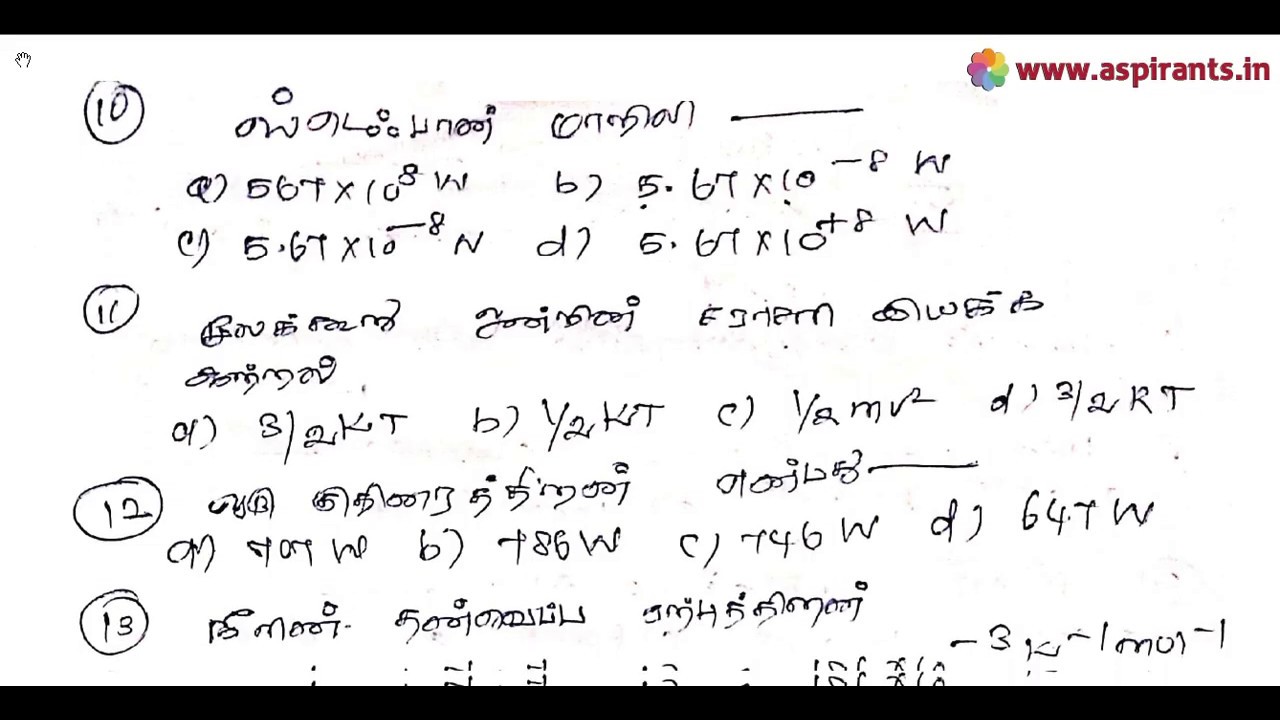 www.aspirants.in
10 ஸ்டெஃபான் மாறிலி ———
a) 567 x 10⁸ W b) 5.67 x 10⁻⁸ W
c) 5.67 x 10⁻⁸ N d) 5.67 x 10⁺⁸ W
11 மூலக்கூறு ஒன்றின் சராசரி இயக்க
ஆற்றல்
a) 3/2 KT b) 1/2 KT c) 1/2 mv² d) 3/2 RT
12 ஒரு குதிரைத்திறன் என்பது ———
a) W b) 786 W c) 746 W d) 647 W
13 தன்வெப்ப ஏற்புத்திறன்
-3 K⁻¹ mol⁻¹